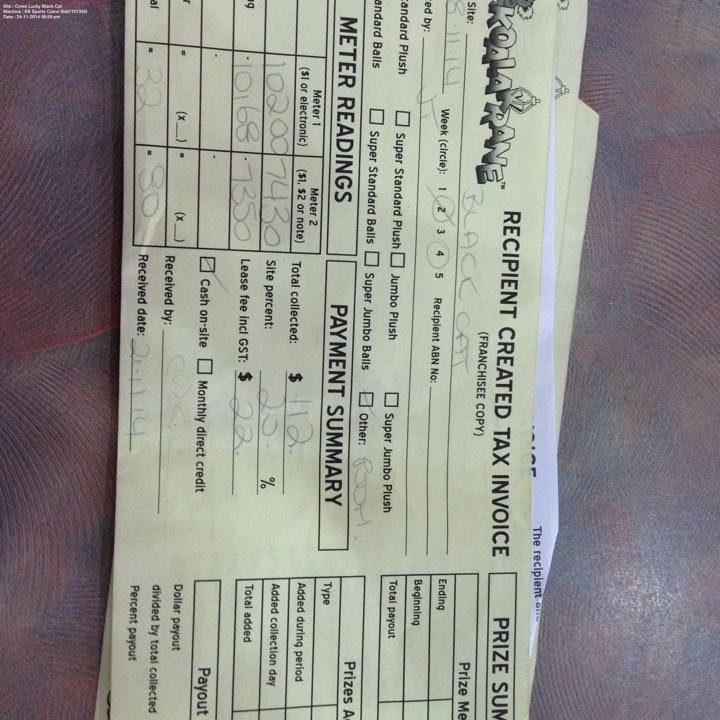 Site : Cores Lucky Black Cat
Machine : KK Sports Crane Std(1101345)
Date : 24-11-2014 06:59 pm
KOALA KRANE™
RECIPIENT CREATED TAX INVOICE
(FRANCHISEE COPY)
The recipient and
Site: BLACK CAT
Week (circle): 1 2 3 4 5 Recipient ABN No:
ed by:
tandard Plush Super Standard Plush Jumbo Plush Super Jumbo Plush
andard Balls Super Standard Balls Super Jumbo Balls Other:
METER READINGS
Meter 1 ($1 or electronic)
Meter 2 ($1, $2 or note)
10200 7430
ng 10168 7350
r (x __) = (x __) =
al = 32 = 80
PAYMENT SUMMARY
Total collected: $ 112
Site percent: 20 %
Lease fee incl GST: $ 22
Cash on-site Monthly direct credit
Received by:
Received date:
PRIZE SUM
Prize Me
Ending
Beginning
Total payout
Prizes A
Type
Added during period
Added collection day
Total added
Payout
Dollar payout
divided by total collected
Percent payout